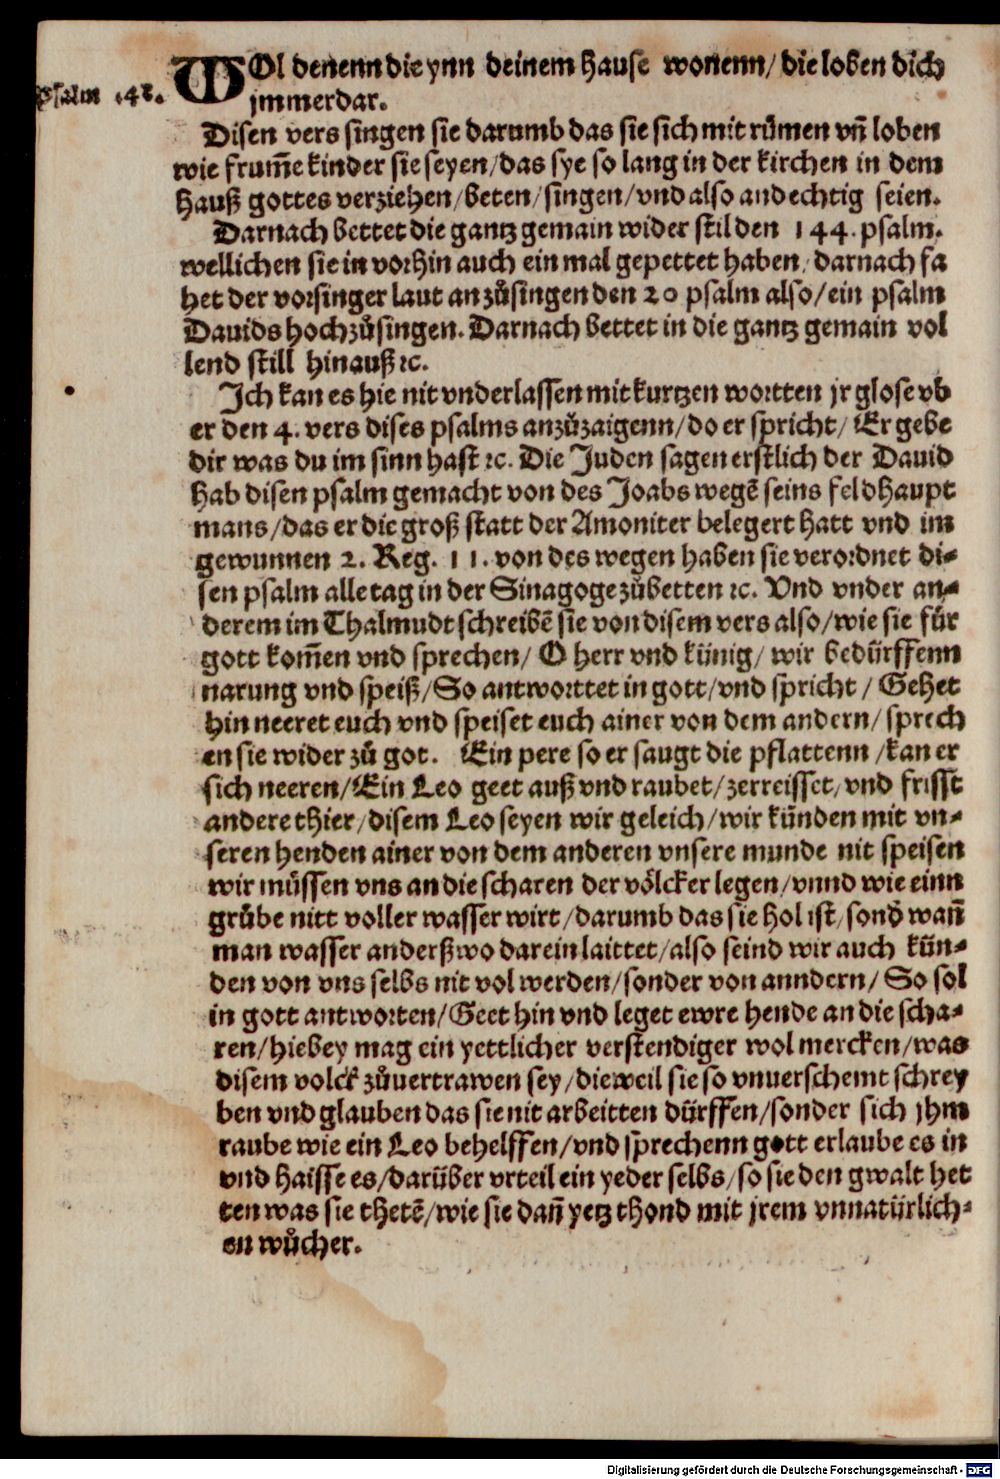 WOl denenn die ynn deinem hause wonenn/ die loben dich
psalm .48.
jmmerdar.
Disen vers singen sie darumb das sie sich mit růmen vñ loben
wie frum̃e kinder sie seyen/das sye so lang in der kirchen in dem
hauß gottes verziehen/beten/singen/vnd also andechtig seien.
Darnach bettet die gantz gemain wider stil den 144. psalm.
wellichen sie in vorhin auch ein mal gepettet haben/ darnach fa
het der vorsinger laut an zůsingen den 20 psalm also/ein psalm
Dauids hoch zůsingen. Darnach bettet in die gantz gemain vol
lend still hinauß ⁊c.
Ich kan es hie nit vnderlassen mit kurtzen wortten jr glose vb
er den 4. vers dises psalms anzůzaigenn/do er spricht/ Er gebe
dir was du im sinn hast ⁊c. Die Juden sagen erstlich der Dauid
hab disen psalm gemacht von des Joabs wegẽ seins feldhaupt
mans/das er die groß statt der Amoniter belegert hatt vnd im
gewunnen 2. Reg. 11. von des wegen haben sie verordnet di-
sen psalm alle tag in der Sinagoge zůbetten ⁊c. Vnd vnder an-
derem im Thalmudt schreibẽ sie von disem vers also/wie sie für
gott kom̃en vnd sprechen/ O herr vnd künig/ wir bedürffenn
narung vnd speiß/So antworttet in gott/vnd spricht/ Gehet
hin neeret euch vnd speiset euch ainer von dem andern/sprech
en sie wider zů got. Ein pere so er saugt die pflattenn/kan er
sich neeren/Ein Leo geet auß vnd raubet/zerreisset/vnd frisst
andere thier/disem Leo seyen wir geleich/wir künden mit vn-
seren henden ainer von dem anderen vnsere munde nit speisen
wir müssen vns an die scharen der völcker legen/vnnd wie einn
grůbe nitt voller wasser wirt/darumb das sie hol ist/sond̃ wañ
man wasser anderßwo darein laittet/also seind wir auch kün-
den von vns selbs nit vol werden/sonder von anndern/ So sol
in gott antworten/Geet hin vnd leget ewre hende an die scha-
ren/hiebey mag ein yettlicher verstendiger wol mercken/was
disem volck zůuertrawen sey/dieweil sie so vnuerschemt schrey
ben vnd glauben das sie nit arbeitten dürffen/sonder sich jhm
raube wie ein Leo behelffen/vnd sprechenn gott erlaube es in
vnd haisse es/darüber vrteil ein yeder selbs/so sie den gwalt het
ten was sie thetẽ/wie sie dañ yetz thond mit jrem vnnatürlich-
en wůcher.
Digitalisierung gefördert durch die Deutsche Forschungsgemeinschaft - DFG